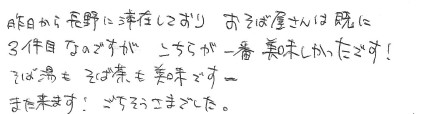 昨日から長野に滞在しており おそば屋さんは既に
3件目なのですが こちらが一番美味しかったです!
そば湯もそば茶も美味ですー
また来ます! ごちそうさまでした。